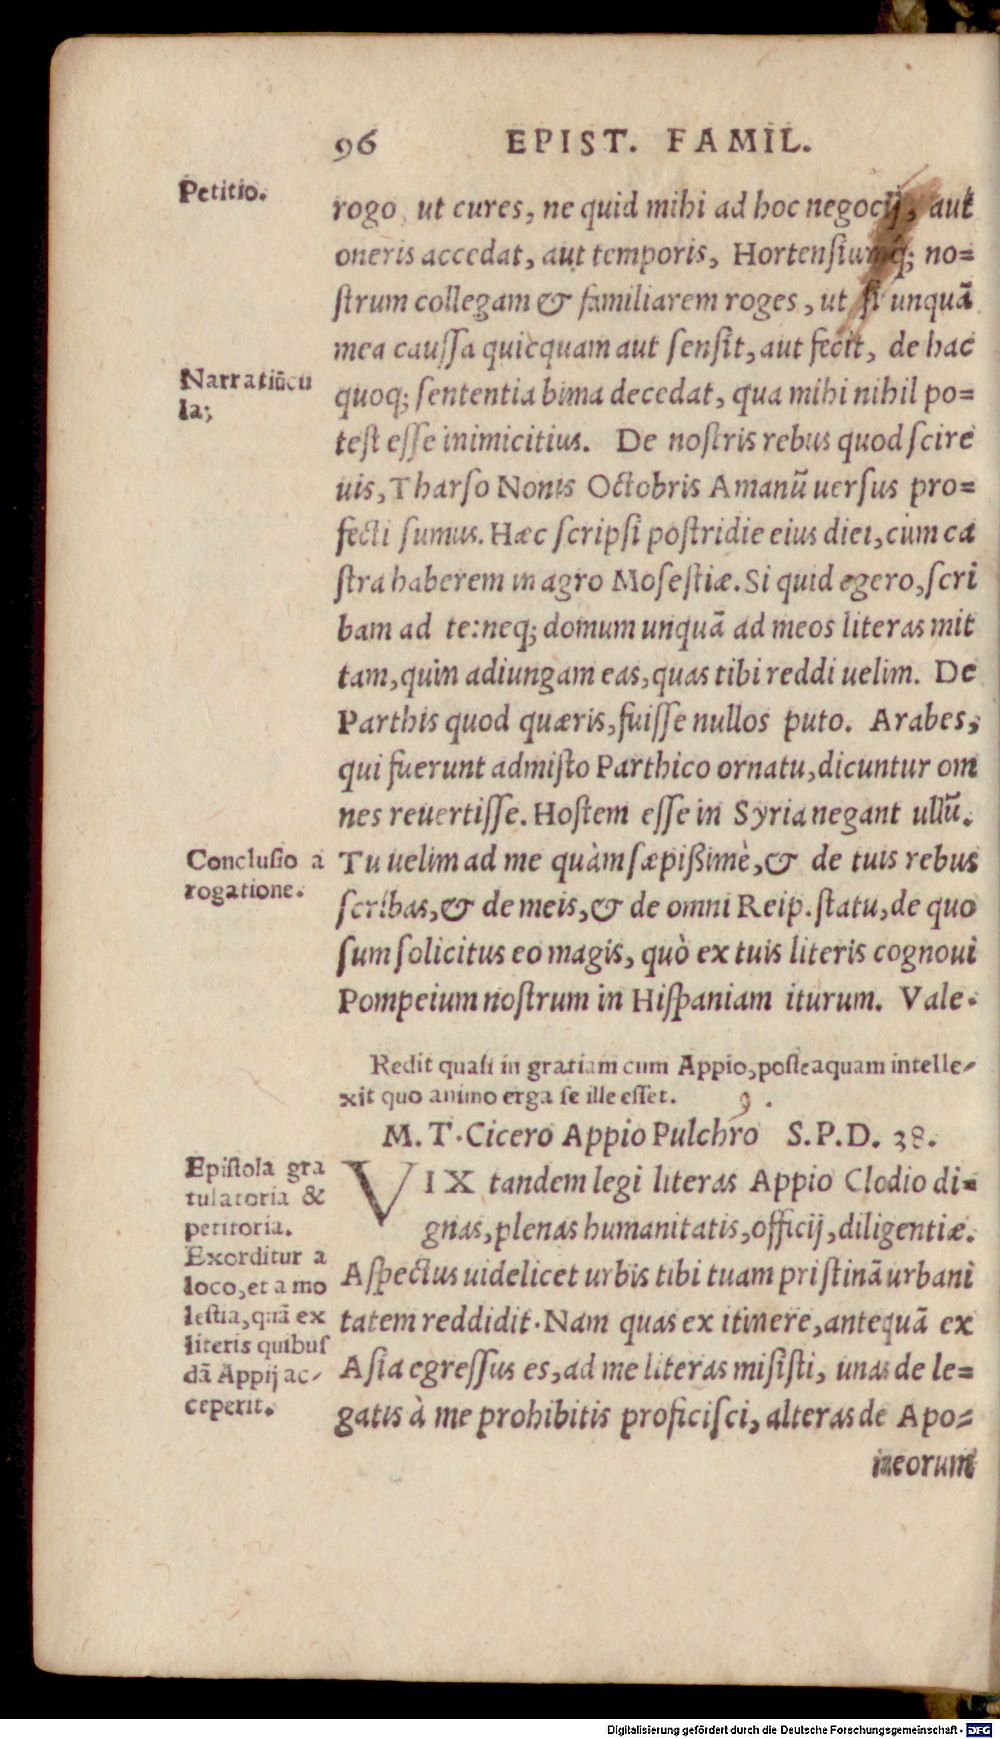 96 EPIST. FAMIL.
Petitio.
rogo ut cures, ne quid mihi ad hoc negocij, aut
oneris accedat, aut temporis, Hortensiumq́; no=
ſtrum collegam & familiarem roges, ut ſi unquā
mea cauſſa quicquam aut ſenſit, aut fecit, de hac
Narratiūcu
la;
quoq; ſententia bima decedat, qua mihi nihil po=
teſt eſſe inimicitius. De noſtris rebus quod ſcire
uis, Tharſo Nonis Octobris Amanū uerſus pro=
fecti ſumus. Hæc ſcripſi poſtridie eius diei, cùm ca
ſtra haberem in agro Moſeſtiæ. Si quid egero, ſcri
bam ad te: neq; domum unquā ad meos literas mit
tam, quin adiungam eas, quas tibi reddi uelim. De
Parthis quod quæris, fuiſſe nullos puto. Arabes,
qui fuerunt admiſto Parthico ornatu, dicuntur om
nes reuertiſſe. Hoſtem eſſe in Syria negant ullū.
Concluſio a
rogatione.
Tu uelim ad me quàm ſæpißimè, & de tuis rebus
ſcribas, & de meis, & de omni Reip. ſtatu, de quo
ſum ſolicitus eo magis, quò ex tuis literis cognoui
Pompeium noſtrum in Hiſpaniam iturum. Vale.
Redit quaſi in gratiam cum Appio, poſteaquam intelle-
xit quo animo erga ſe ille eſſet. 9.
M. T. Cicero Appio Pulchro S. P. D. 38.
Epiſtola gra
tulatoria &
petitoria.
Exorditur a
loco, et a mo
leſtia, quā ex
literis quibuſ
dā Appij ac-
ceperit.
VIX tandem legi literas Appio Clodio di=
gnas, plenas humanitatis, officij, diligentiæ.
Aſpectus uidelicet urbis tibi tuam priſtinā urbani
tatem reddidit. Nam quas ex itinere, antequā ex
Aſia egreſſus es, ad me literas miſiſti, unas de le=
gatis à me prohibitis proficiſci, alteras de Apo=
meorum
Digitalisierung gefördert durch die Deutsche Forschungsgemeinschaft - DFG